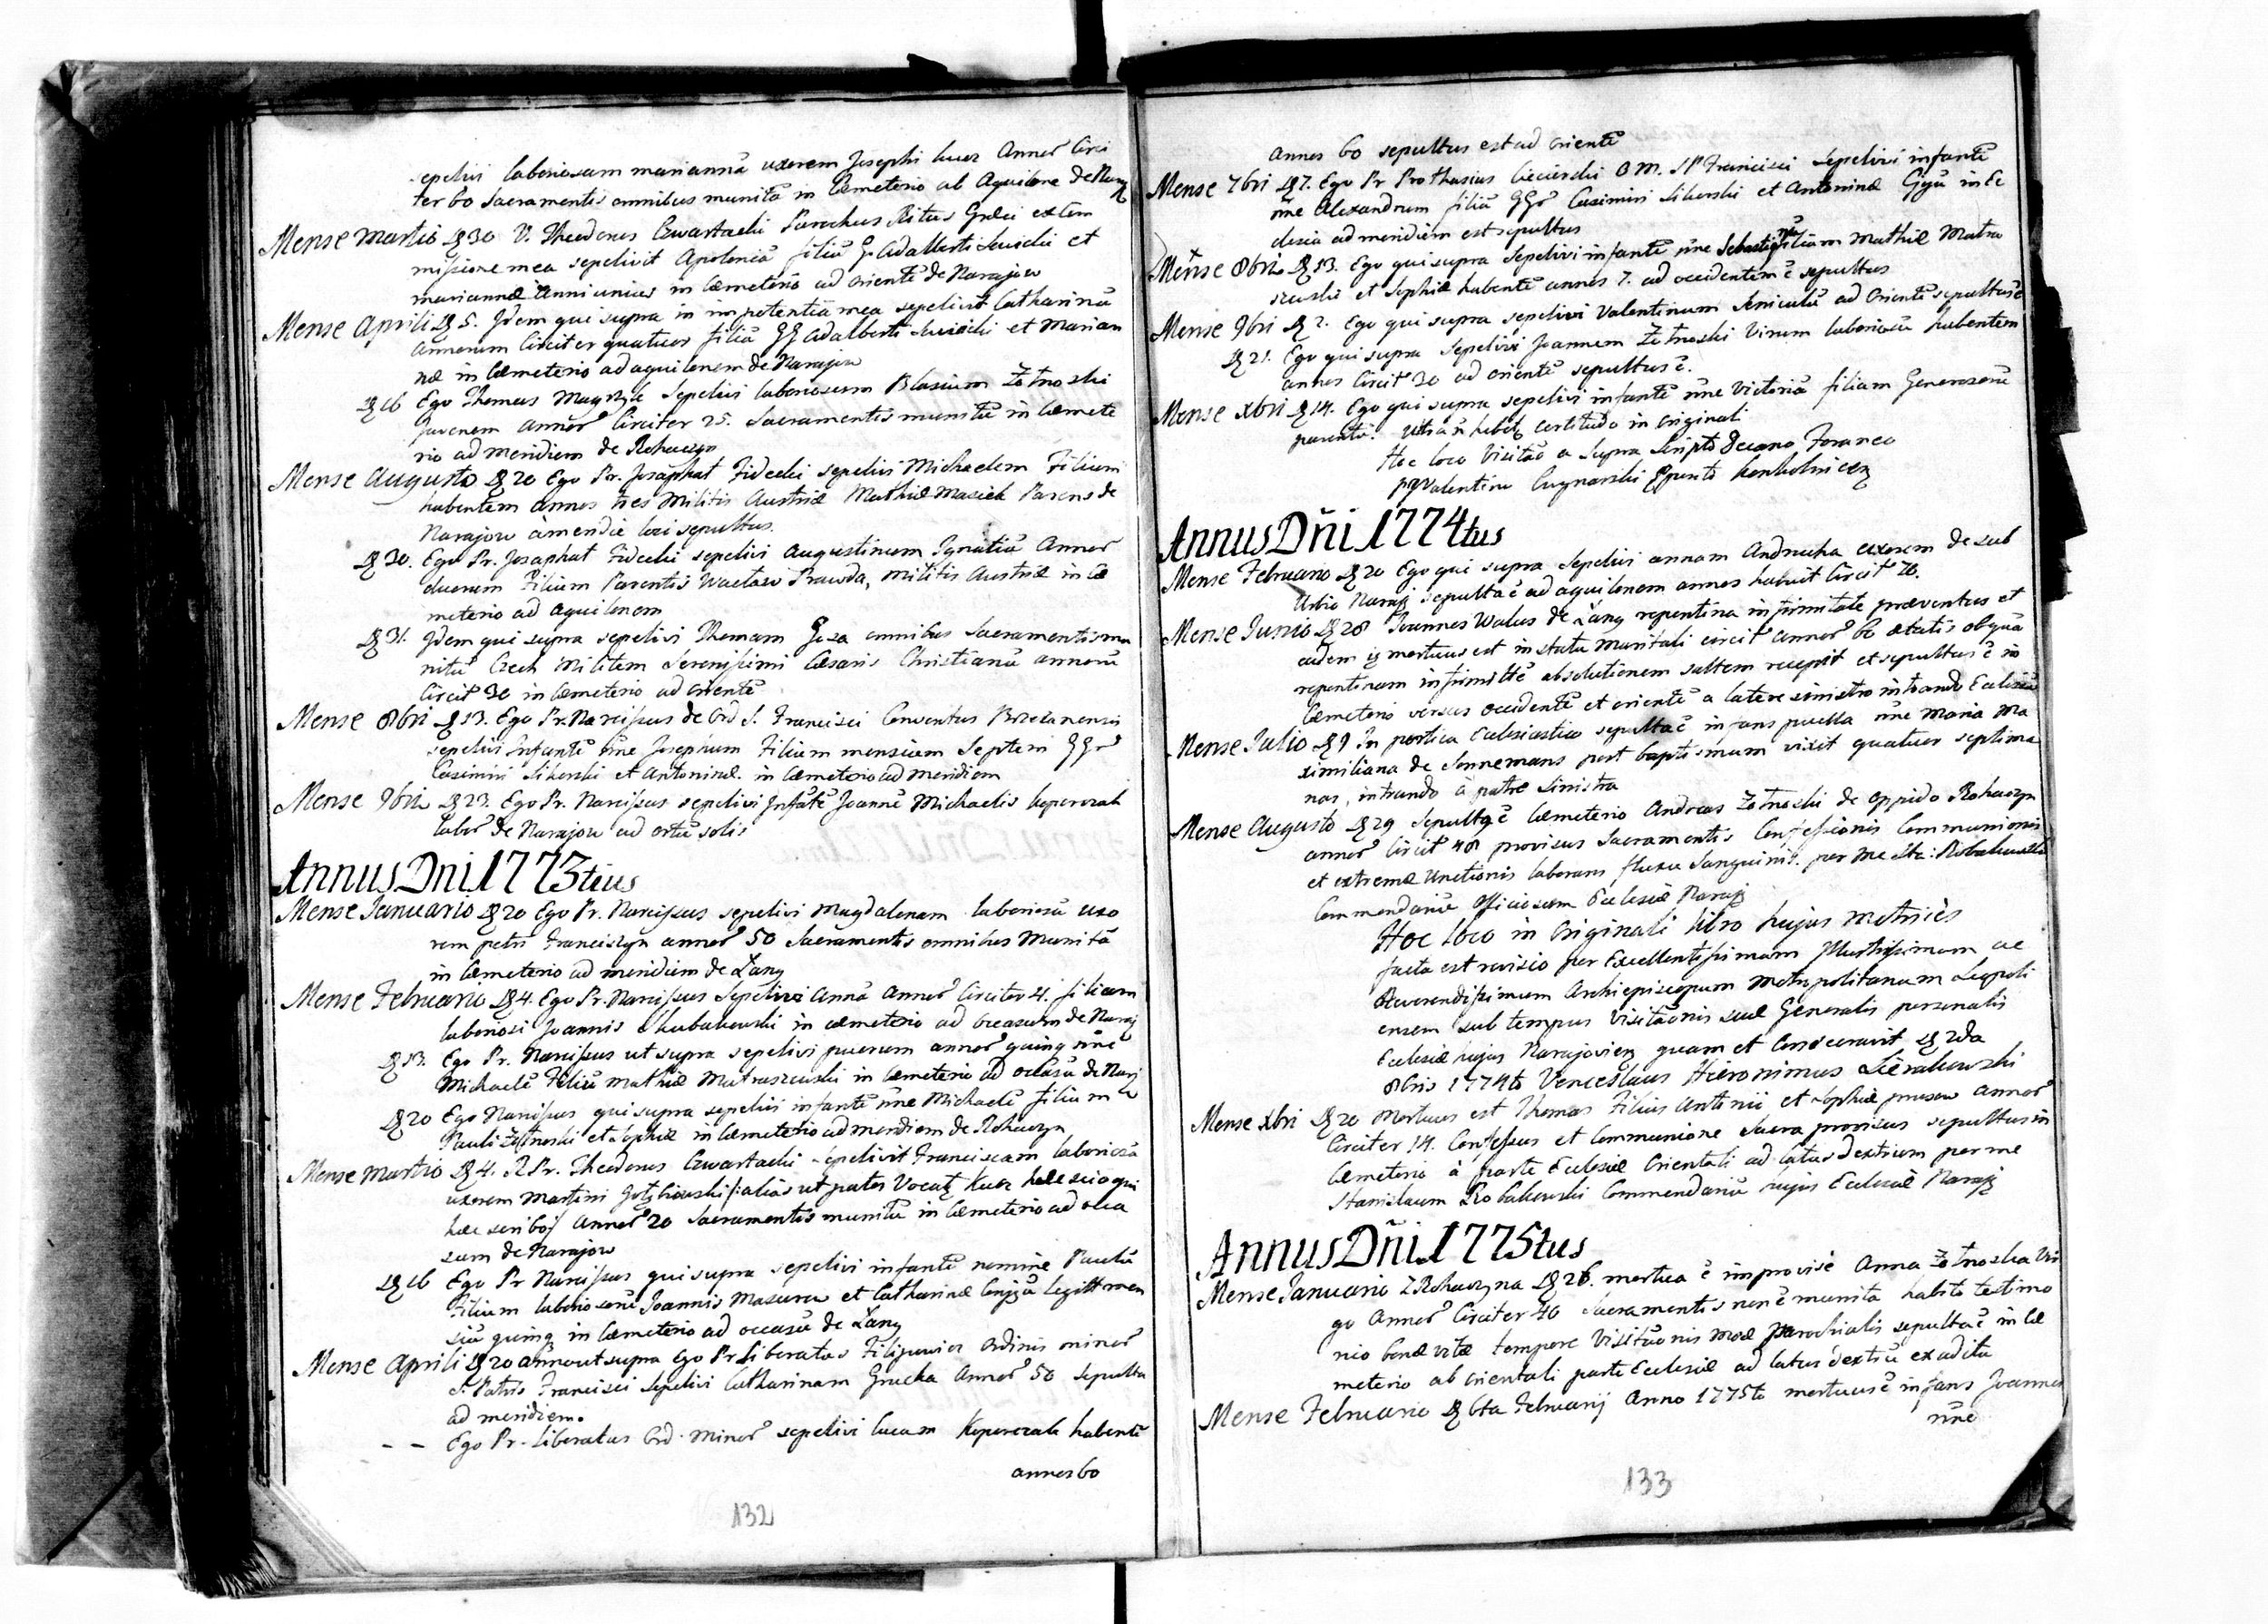 sepelivi laboriosam mariannā uxorem Josephi kucz Annor Circi
ter 60 Sacramentis omnibus munitā in Cæmeterio ab Aquilone de Naraj
Mense Martio 30 V. Theodorus Czwartacki Parochus Ritus Græci ex com
missione mea sepelivit Apoloniā filiā G. Adalberti et
mariannæ Anni unius in Cæmeterio ad orientē de Narajow
Mense Aprili 5. Jdem qui supra in impotentia mea sepelivit Catharinā
annorum Circiter quatuor filiā GG Adalberti et Marian
næ in Cæmeterio ad aquilonem de Narajow
16 Ego Thomas Sepelivi laboriosum Blasium Żotnoski
Juvenem Annor Circiter 25. Sacramentis munitū in Cæmete
rio ad meridiem de Rohaczyn
Mense Augusto 20 Ego Pr. Josaphat Fidecki sepelivi Michaelem Filium
habentem annos tres Militis Austriæ Mathiæ Masick Parens de
Narajow à meridie loci sepultus.
30. Ego Pr. Josaphat Fidecki sepelivi Augustinum Ignatiū Annor
duorum Filium Parentis Wactaw Prawda, militis Austriæ in Cæ
meterio ad aquilonem
31. Jdem qui supra sepelivi Thomam Goza omnibus Sacramentis mu
nitū Czech Militem Serenissimi Cæsaris Christianū annorū
Circit 30 in Cæmeterio ad orientē
Mense 8bri 13. Ego Pr. Narcissus de Ord S. Francisci Conventus Brzezanensis
sepelivi Infantē nīne Josephum Filium mensium Septem GGr
Casimiri Sikorski et Antoninæ in Cæmeterio ad meridiem
Mense 9bri 23. Ego Pr. Narcissus sepelivi Infātē Joannē Michaelis koperczak
labor de Narajow ad ortū solis
Annus Dni 1773tius
Mense Januario 20 Ego Pr. Narcissus sepelivi Magdalenam laboriosā uxo
rem petri Franciszyn annor 50 Sacramentis omnibus Munitā
in Cæmeterio ad meridiem de Łany
Mense Februario 4. Ego Pr. Narcissus Sepelivi Annā Annor Circiter 4. filiam
laboriosi Joannis Skubakowski in Cæmeterio ad occasum de Naraj
13. Ego Pr. Narcissus ut supra sepelivi puerum annor quinq nīne
Michaelē Filiū Mathiæ Matraszewski in Cæmeterio ad occasū de Naraj
20 Ego Narcissus qui supra sepelivi infantē nīne Michaelē filium
Pauli Żotnoski et Sophiæ in Cæmeterio ad meridiem de Rohaczyn
Mense Martio 4. R Pr. Theodorus Czwartacki Sepelivit Franciscam laboriosā
uxorem Martini aliàs ut pater Vocat Kucz hæc scio qui
hæc scribo Annor 20 Sacramentis munitā in Cæmeterio ad occa
sum de Narajow
16 Ego Pr Narcissus qui supra sepelivi infantē nomine Paulū
Filium laboriosorū Joannis Mazurow et Catharinæ Conjgū legitt men
siū quinq in Cæmeterio ad occasū de Łany
Mense Aprili 20 anno ut supra Ego Pr Liberatus Filipowicz Ordinis Minor
S. Patris Francisci Sepelivi Catharinam Gnacka Annor 50 sepulta
ad meridiem.
– – Ego Pr. Liberatus Ord. Minor sepelivi lucam Koperczak habentē
annos 60
132
Annos 60 sepultus est ad orientē
Mense 7bri 7. Ego Pr Prothasius Ciecierski O M. S P Francisci Sepelivi infantē
nīne Alexandrum filiū GGr Casimiri Sikorski et Antoninæ Cgū in Ec
clesia ad meridiem est sepultus
Mense 8bris 13. Ego qui supra Sepelivi infantē nīne Sebastianū filium Mathiæ Matra
szewski et Sophiæ habentē annos 7. ad occidentem ē sepultus
Mense 9bri 2. Ego qui supra sepelivi Valentinum Seniculū ad Orientē sepultus ē
21. Ego qui supra Sepelivi Joannem Żotnoski Virum laboriosū habentem
annos Circit 30 ad orientē sepultus ē.
Mense xbri 14. Ego qui supra sepelivi infantē nīne Victoriā filiam Generosorū
parentū. certitudo in originali
Hoc loco Visitāo a Supra Scripto Decano Foraneo
Valentino
Annus Dñi 1774tus
Mense Februario 20 Ego qui supra Sepelivi annam Andrucha uxorem de sub
Urbio Naraj sepulta ē ad aquilonem annos habuit Circit 70.
Mense Junio 28 Joannes Walus de Łany repentina infirmitate præventus et
eadem mortuus est in statu maritali circit annor 60 ætatis ob quā
repentinam infirmittē absolutionem saltem recepit et sepultus ē in
Cæmeterio versus occidentē et orientē a latere sinistro intrando Ecclesiā
Mense Julio 9 In portica Ecclesiastica sepulta ē infans puella nīne Maria Ma
ximiliana de Sonnemans post baptismum vixit quatuor septima
nas, intrando à patre Sinistra
Mense Augusto 29 Sepultq ē Cæmeterio Andreas Żotnoski de oppido Rohaczyn
annor Circit 48 provisus Sacramentis Confessionis Communionis
et extremæ Unctionis laborans fluxu Sanguinis. per me Sta: Robakowski
Commendariū officiosum Ecclesiæ Naraj
Hoc loco in Originali libro hujus metrices
facta est revisio per Excellentissimum Jllustrissimum ac
Reverendissimum Archiepiscopum Metropolitanum Leopoli
ensem sub tempus Visitāonis suæ Generalis personalis
Ecclesiæ hujus Narajovien quam et Consecravit 2da
8bris 1774to Venceslaus Hieronimus Sierakowski
Mense xbri 20 Mortuus est Thomas Filius Antonii et Sophiæ prusow annor
Circiter 14. Confessus et Communione Sacra provisus sepultus in
Cæmeterio à parte Ecclesiæ Orientali ad latus dextrum per me
Stanislaum Robakowski Commendariū hujus Ecclesiæ Naraj
Annus Dñi 1775tus
Mense Januario Z Rohaczyna 26. mortua ē improvisè Anna Żotnoska Vir
go Annor Circiter 40 Sacramentis non ē munita habito testimo
nio bonæ vitæ tempore Visitāonis meæ parochialis sepulta ē in Cæ
meterio ab orientali parte Ecclesiæ ad latus dextrū ex aditu
Mense Februario 6ta Februarij Anno 1775to mortuus ē infans Joannes
nīne
133